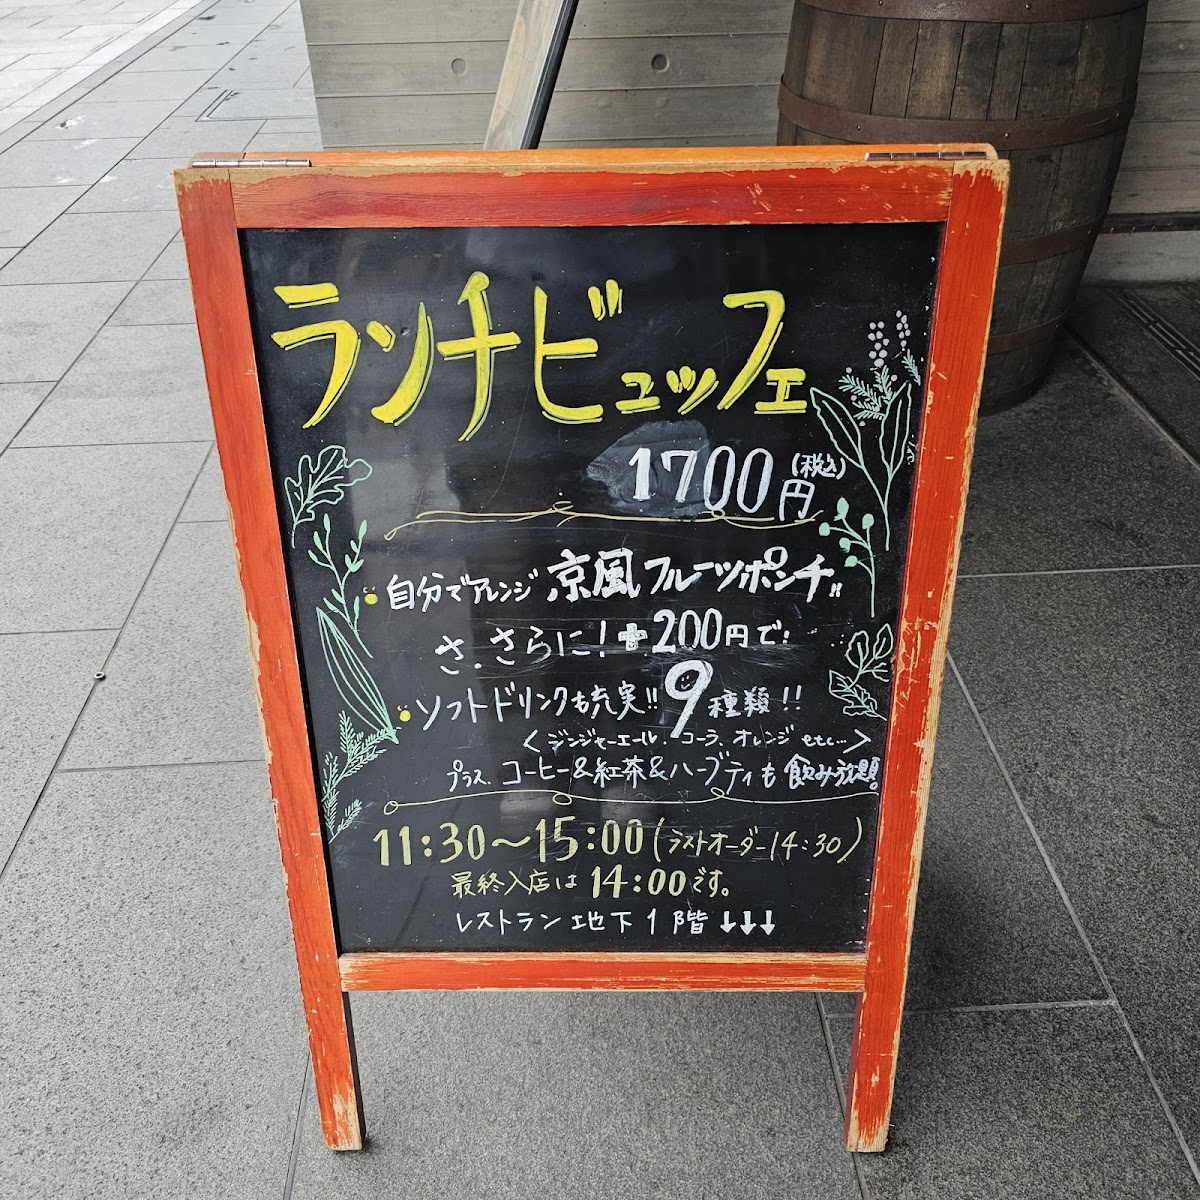 ランチビュッフェ
1700円(税込)
自分でアレンジ 京風フルーツポンチ!!
さ.さらに!+200円で!
ソフトドリンクも充実!!9種類!!
<ジンジャーエール.コーラ.オレンジetc...>
プラス.コーヒー&紅茶&ハーブティも飲み放題。
11:30〜15:00(ラストオーダー14:30)
最終入店は14:00です。
レストラン地下1階↓↓↓